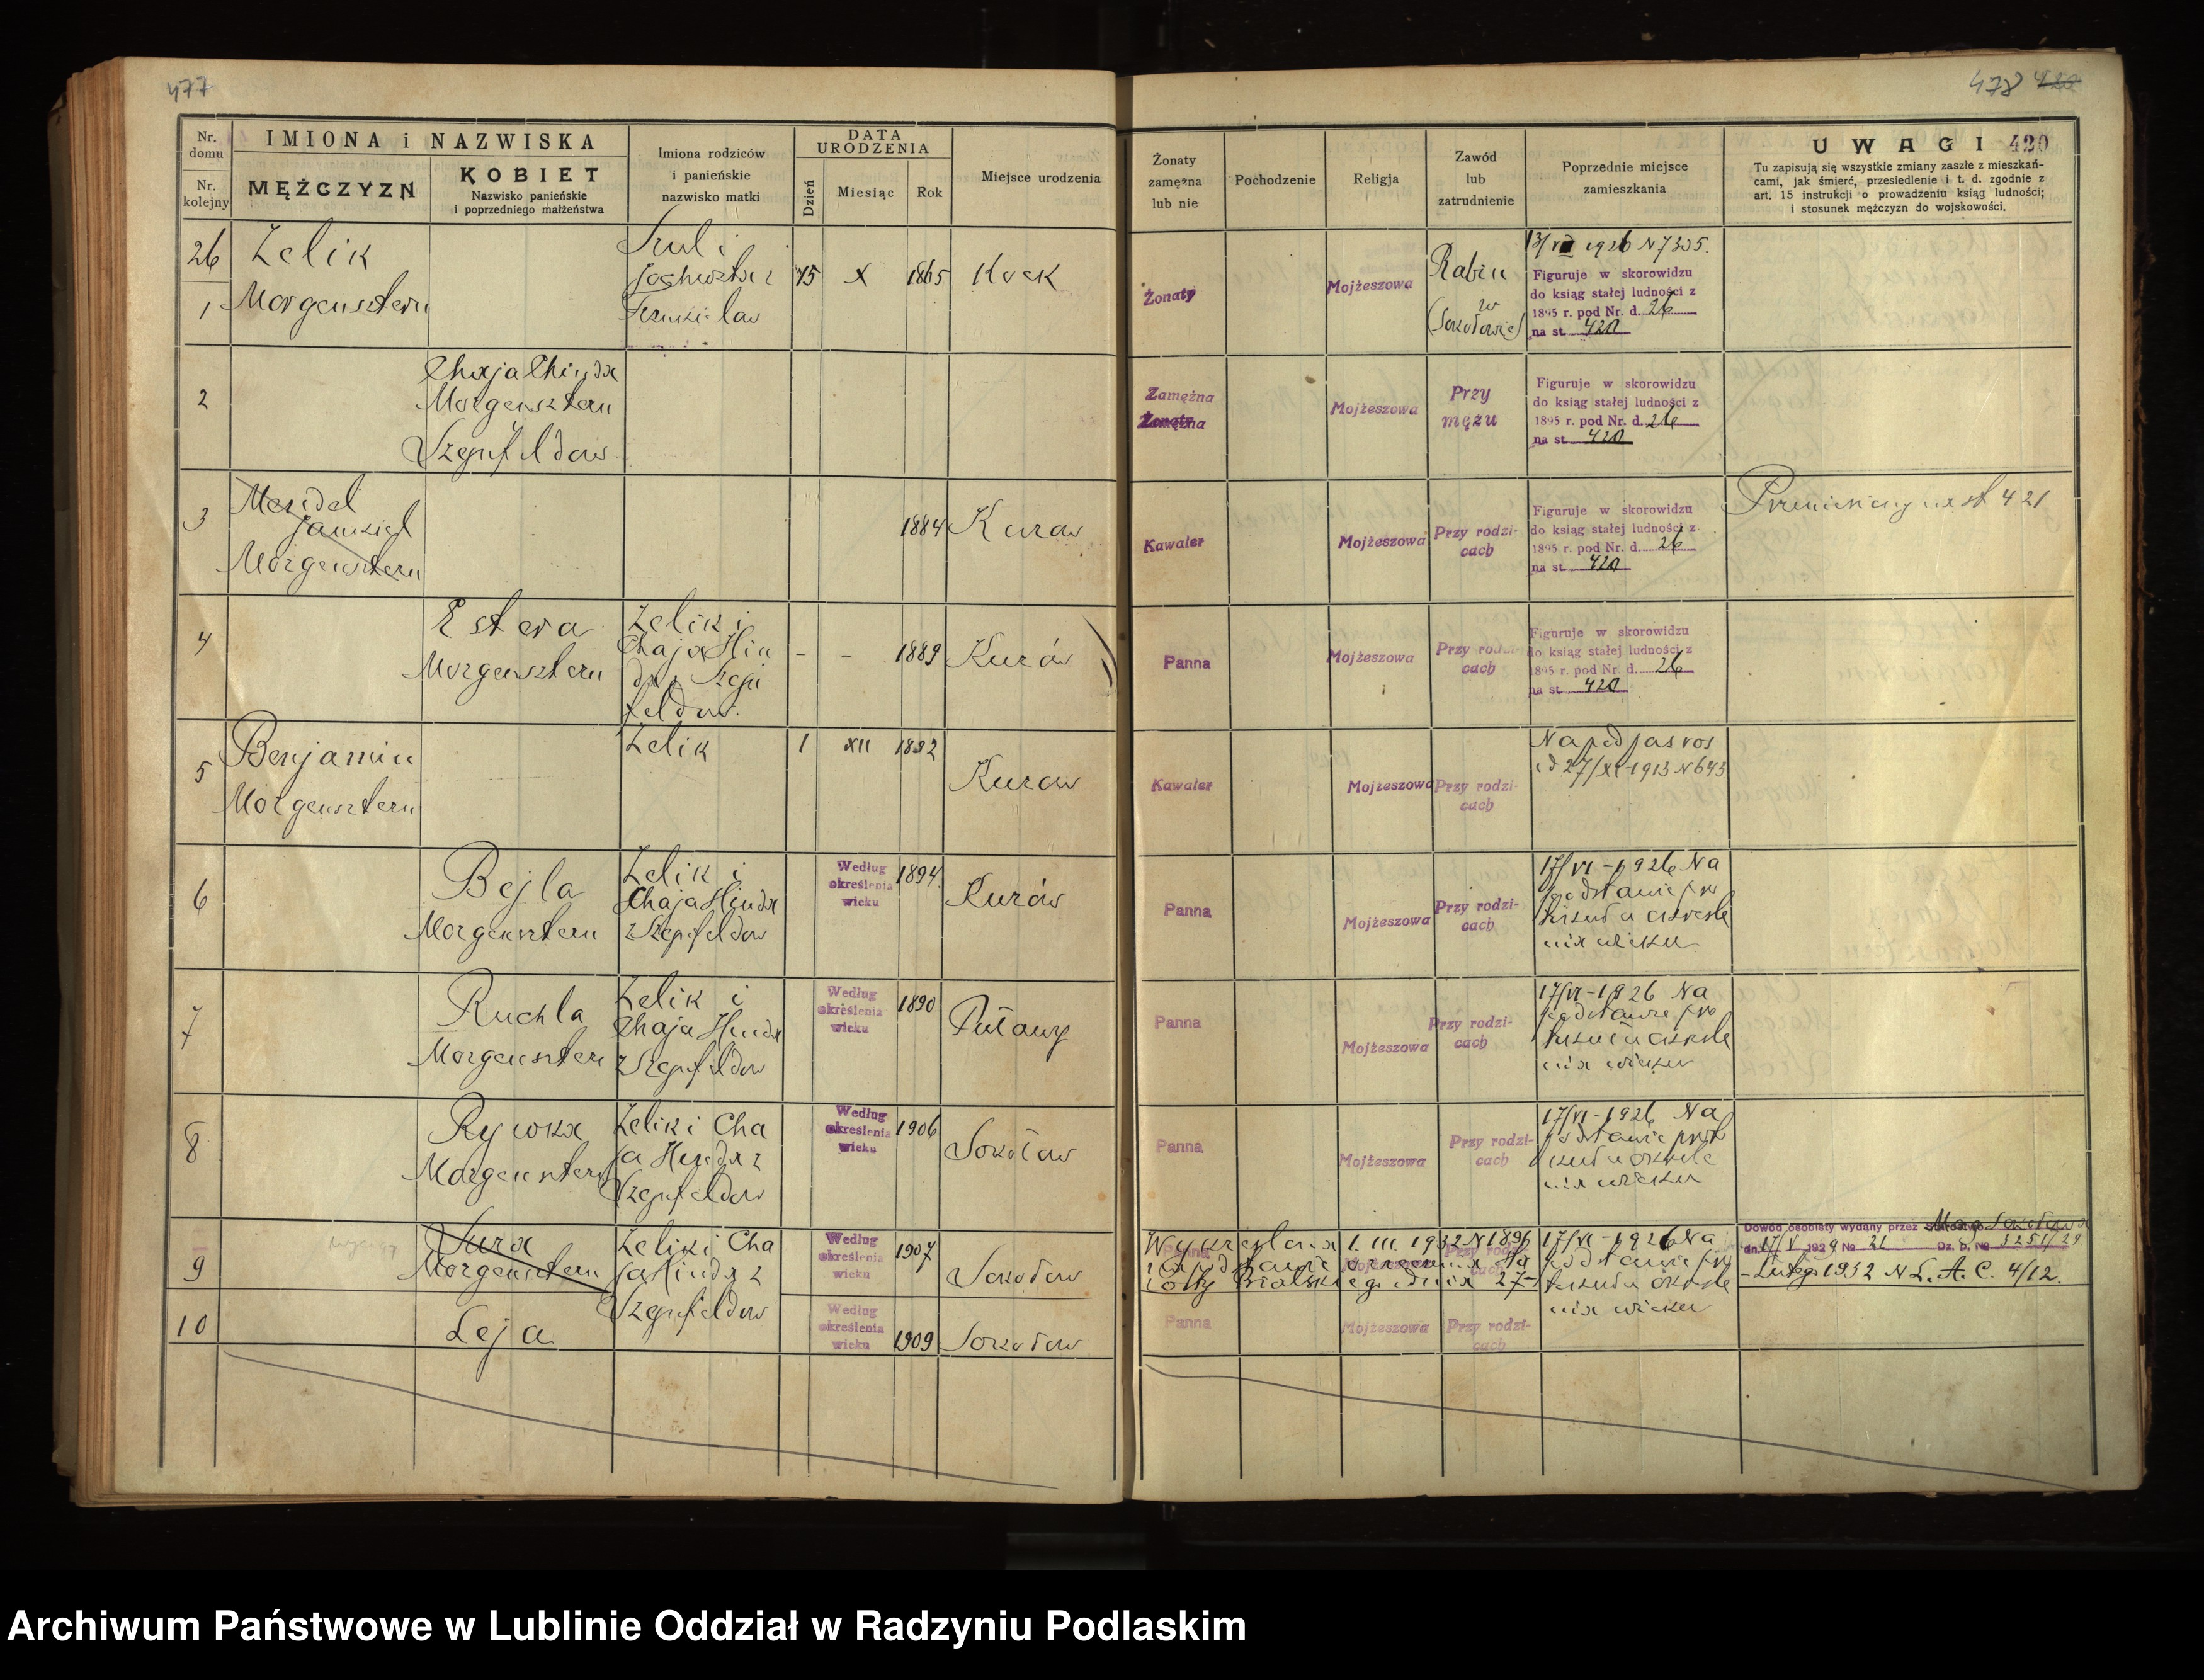 477
478
Nr. domu
Nr. kolejny
IMIONA i NAZWISKA
MĘŻCZYZN
KOBIET
Nazwisko panieńskie
i poprzedniego małżeństwa
Imiona rodziców
i panieńskie
nazwisko matki
DATA
URODZENIA
Dzień
Miesiąc
Rok
Miejsce urodzenia
Żonaty
zamężna
lub nie
Pochodzenie
Religja
Zawód
lub
zatrudnienie
Poprzednie miejsce
zamieszkania
UWAGI 420
Tu zapisują się wszystkie zmiany zaszłe z mieszkań-
cami, jak śmierć, przesiedlenie i t. d. zgodnie z
art. 15 instrukcji o prowadzeniu ksiąg ludności;
i stosunek mężczyzn do wojskowości.
26
1
Zelik
Morgensztern
Szul i
15 X 1865 Kock
Żonaty
Mojżeszowa
Rabin
w
(Sokołowie)
1926 N 7305.
Figuruje w skorowidzu
do ksiąg stałej ludności z
1895 r. pod Nr. d. 26
na st. 420
2
Chaja Chinda
Morgensztern
Szejnfeldow
Zamężna
Mojżeszowa
Przy
mężu
Figuruje w skorowidzu
do ksiąg stałej ludności z
1895 r. pod Nr. d. 26
na st. 420
3
Mendel
Jankiel
Morgensztern
1884 Kurow
Kawaler
Mojżeszowa
Przy rodzi-
cach
Figuruje w skorowidzu
do ksiąg stałej ludności z
1895 r. pod Nr. d. 26
na st. 420
na st 421
4
Estera
Morgensztern
Zelik i
Chaja Hin
da z Szejn
feldow.
- - 1889 Kurów
Panna
Mojżeszowa
Przy rodzi-
cach
Figuruje w skorowidzu
do ksiąg stałej ludności z
1895 r. pod Nr. d. 26
na st. 420
5
Benjamin
Morgensztern
Zelik
1 XII 1892
Kurow
Kawaler
Mojżeszowa
Przy rodzi-
cach
Na pod pas ros
od 27/XI-1913 N 643
6
Bejla
Morgensztern
Zelik i
Chaja Hinda
z Szejnfeldow
Według
określenia
wieku
1894
Kurów
Panna
Mojżeszowa
Przy rodzi-
cach
17/VI-1926 Na
podstawie pro
tokułu określe
nia wieku
7
Ruchla
Morgensztern
Zelik i
Chaja Hinda
z Szejnfeldow
Według
określenia
wieku
1890
Puławy
Panna
Mojżeszowa
Przy rodzi-
cach
17/VI-1926 Na
podstawie pro
tokułu określe
nia wieku
8
Rywka
Morgensztern
Zelik i Cha
ja Hinda z
Szejnfeldow
Według
określenia
wieku
1906
Sokołow
Panna
Mojżeszowa
Przy rodzi-
cach
17/VI-1926 Na
podstawie proto
kułu określe
nia wieku
9
Sura
Morgensztern
Zelik i Cha
ja Hinda z
Szejnfeldow
Według
określenia
wieku
1907
Sokołow
Panna
Mojżeszowa
Przy rodzi-
cach
Wykreślona 1. III. 1932 N 1896
na podstawie
Bialskiego dnia 27-
17/VI-1926 Na
podstawie pro
tokułu określe
nia wieku
Dowód osobisty wydany przez Starostwo Mag Sokołowa
dn. 17/V 1929 No 21 Dz. D. No 3251/29
- Lutego 1932 N L. A. C. 4/12.
10
Leja
Według
określenia
wieku
1909
Sokołow
Panna
Mojżeszowa
Przy rodzi-
cach
Archiwum Państwowe w Lublinie Oddział w Radzyniu Podlaskim